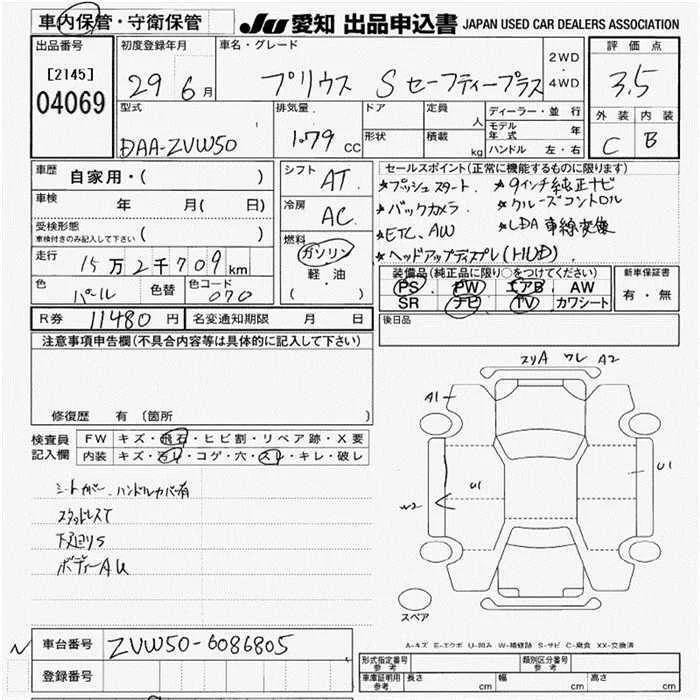 車内保管・守衛保管
JU 愛知 出品申込書 JAPAN USED CAR DEALERS ASSOCIATION
出品番号
[2145]
04069
初度登録年月
29 6月
車名・グレード
プリウス S セーフティープラス
2WD
・
4WD
評価点
3.5
外装 内装
C B
型式
DAA-ZVW50
排気量
1.79 CC
ドア
形状
定員
人
積載
kg
ディーラー・並行
モデル年式 年
ハンドル 左・右
車歴
自家用・( )
車検 年 月( 日)
受検形態
車検付きのみ記入して下さい ( )
走行
15万2千709km
色
パール
色替
色コード
070
シフト
AT
冷房
AC
燃料
ガソリン
軽・油
( )
セールスポイント(正常に機能するものに限ります)
★プッシュスタート. ★9インチ純正ナビ
★バックカメラ. ★クルーズコントロール
★ETC、AW ★LDA 車線変像
★ヘッドアップディスプレイ(HUD)
装備品(純正品に限り○をつけてください)
PS PW エアB AW
SR ナビ TV カワシート
新車保証書
有・無
R券 11480円 名変通知期限 月 日
後日品
注意事項申告欄(不具合内容等は具体的に記入して下さい)
修復歴 有 (箇所 )
検査員
記入欄
FW キズ・飛石・ヒビ割・リペア跡・X要
内装 キズ・汚レ・コゲ・穴・スレ・キレ・破レ
シートカバー、ハンドルカバー有
スタッドレスT
下廻りS
ボディーAU
スリA ワレ A2
A1
U1
U1
W2
スペア
A-キズ E-エクボ U-凹み W-補修跡 S-サビ C-腐食 XX-交換済
車台番号 ZVW50-6086805
登録番号
形式指定番号
参考
類別区分番号
参考
車庫証明用
参考
長さ cm 幅 cm 高さ cm